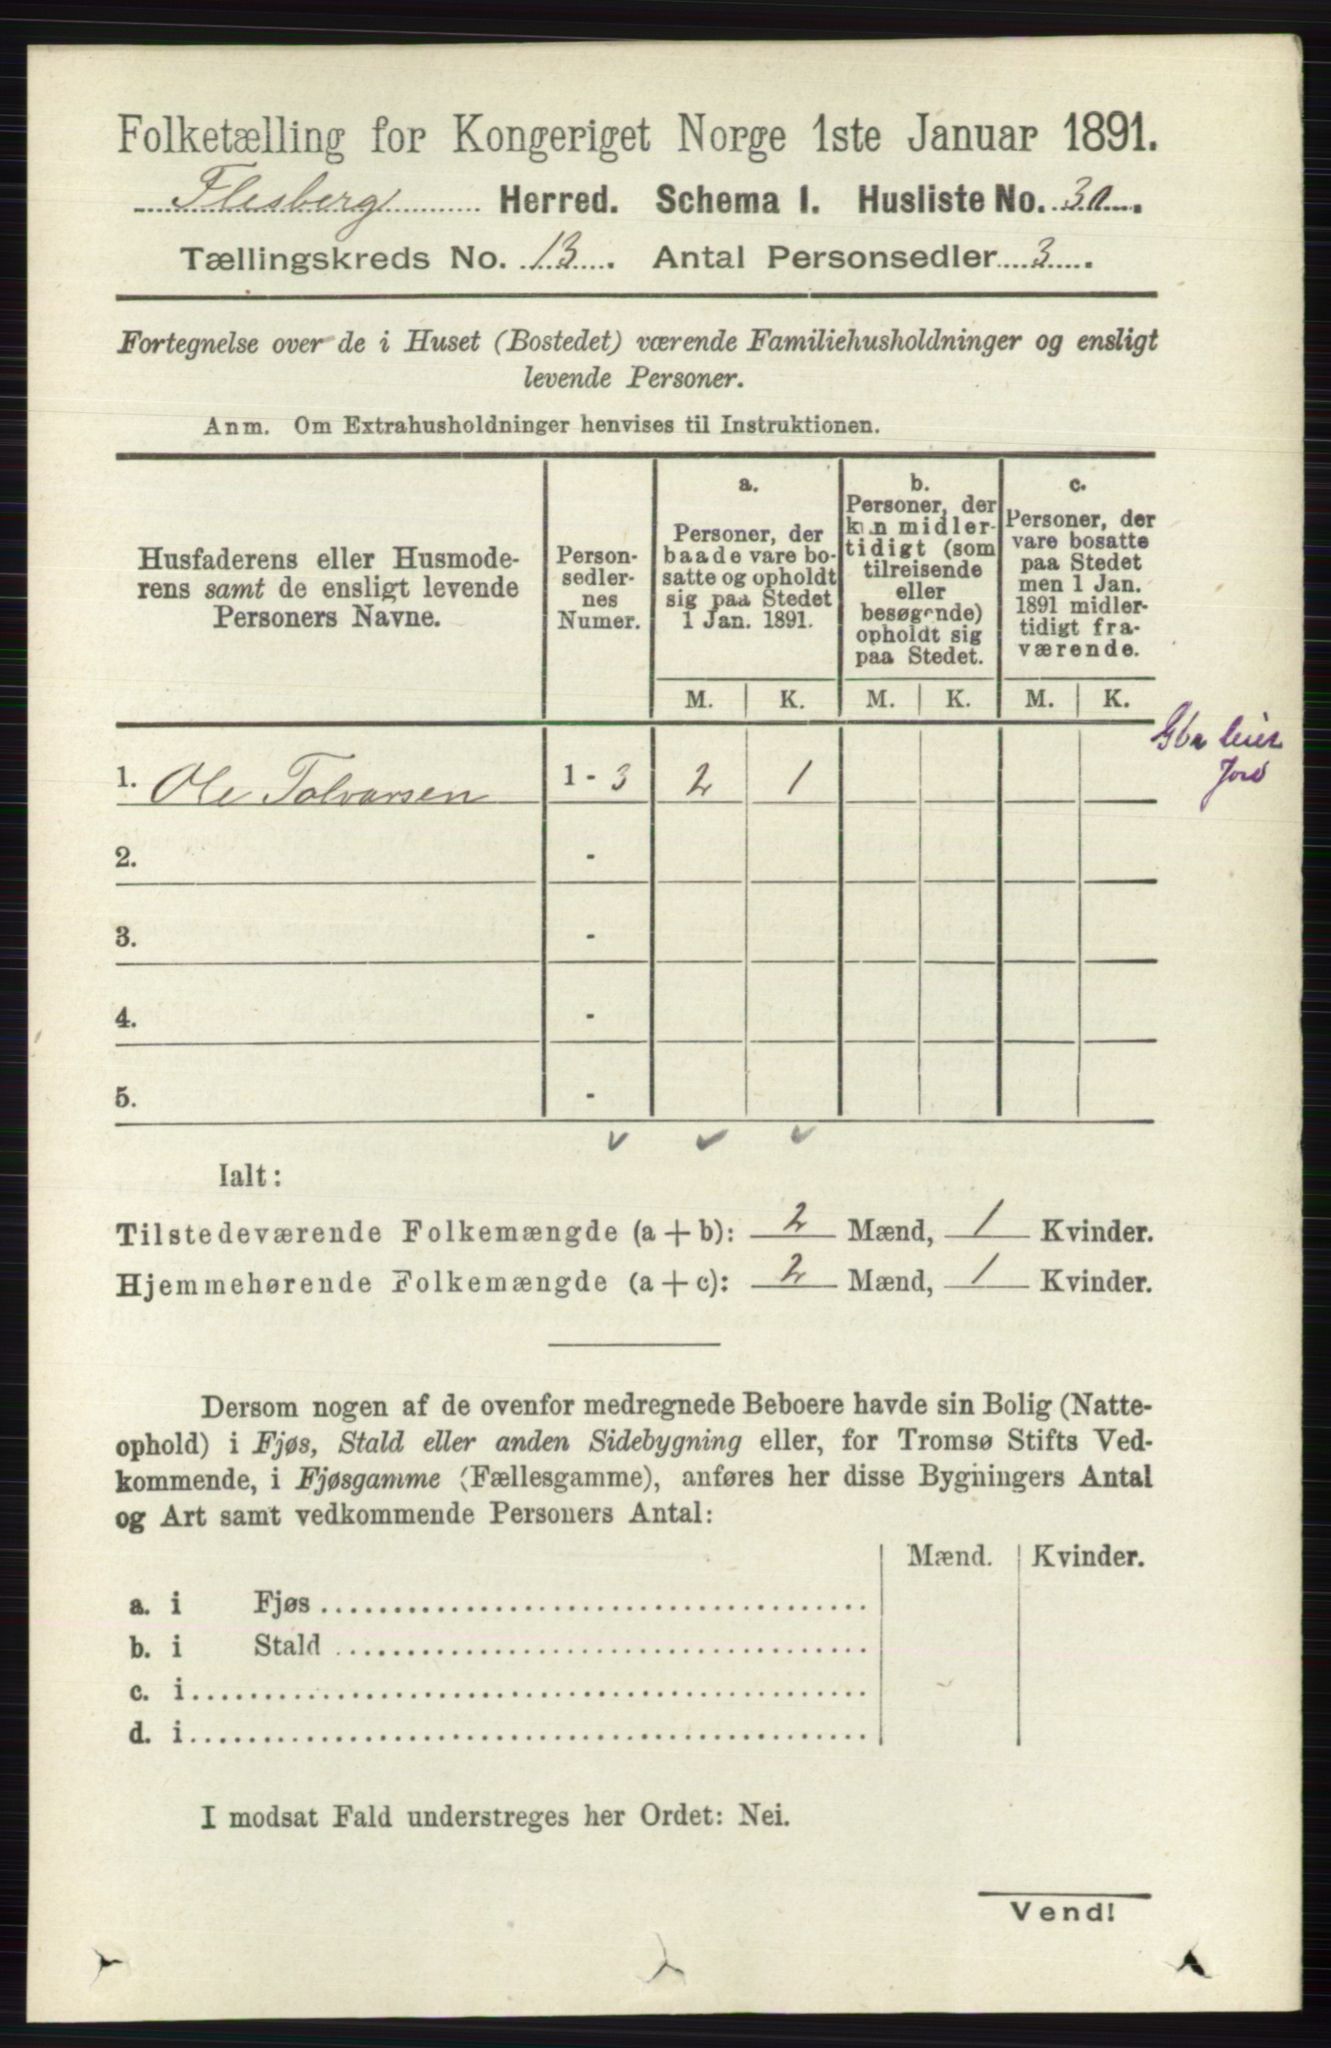 Folketælling for Kongeriget Norge 1ste Januar 1891.
Flesberg Herred. Schema 1. Husliste No. 30.
Tællingskreds No. 13. Antal Personsedler 3.
Fortegnelse over de i Huset (Bostedet) værende Familiehusholdninger og ensligt
levende Personer.
Anm. Om Extrahusholdninger henvises til Instruktionen.
Husfaderens eller Husmode-
rens samt de ensligt levende
Personers Navne.
Person-
sedler-
nes
Numer.
a.
Personer, der
baade vare bo-
satte og opholdt
sig paa Stedet
1 Jan. 1891.
b.
Personer, der
kun midler-
tidigt (som
tilreisende
eller
besøgende)
opholdt sig
paa Stedet.
c.
Personer, der
vare bosatte
paa Stedet
men 1 Jan.
1891 midler-
tidigt fra-
værende.
M. K. M. K. M. K.
1. Ole Tolvarsen 1 - 3 2 1
leier
Jord
2. -
3. -
4. -
5. -
Ialt:
Tilstedeværende Folkemængde (a + b): 2 Mænd, 1 Kvinder.
Hjemmehørende Folkemængde (a + c): 2 Mænd, 1 Kvinder.
Dersom nogen af de ovenfor medregnede Beboere havde sin Bolig (Natte-
ophold) i Fjøs, Stald eller anden Sidebygning eller, for Tromsø Stifts Ved-
kommende, i Fjøsgamme (Fællesgamme), anføres her disse Bygningers Antal
og Art samt vedkommende Personers Antal:
Mænd. Kvinder.
a. i Fjøs
b. i Stald
c. i
d. i
I modsat Fald understreges her Ordet: Nei.
Vend!